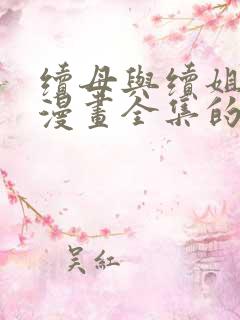 續母與續姐
漫畫全集的
吴紅